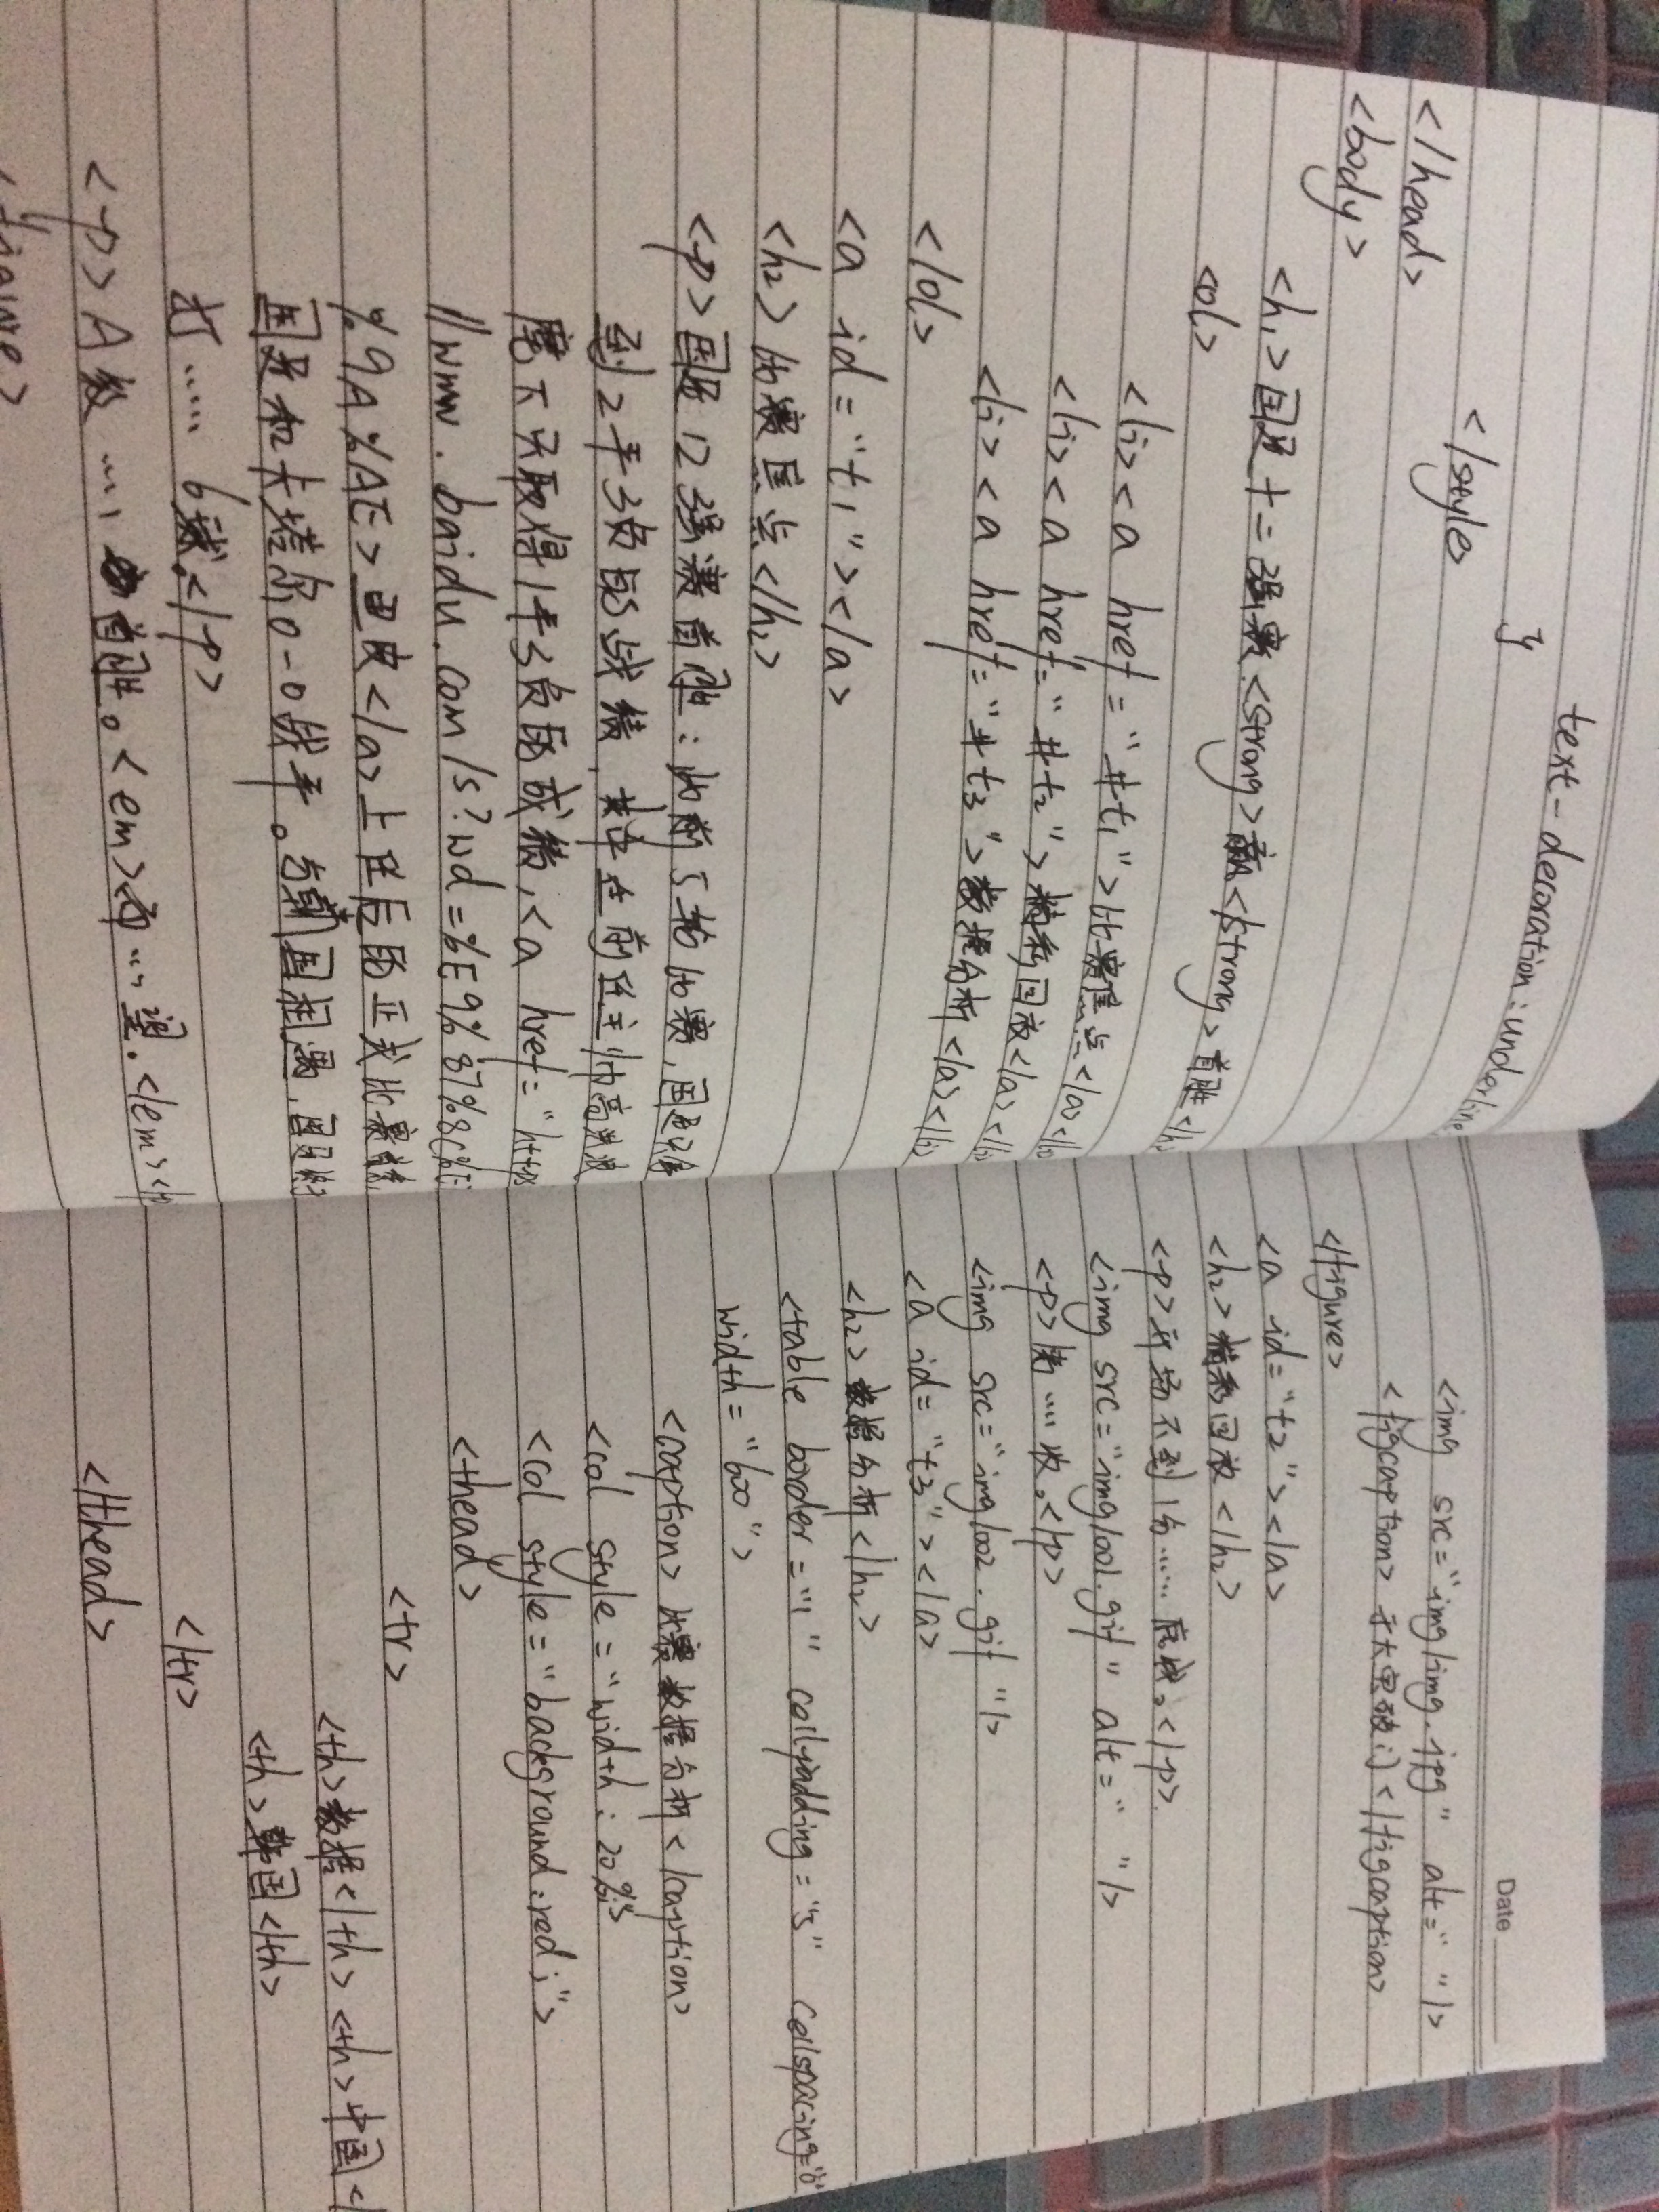 text-decoration:underline
}
</style>
</head>
<body>
<h1>国足十二强赛<strong></strong>首胜</h
<ol>
<li><a href="#t1">比赛焦点</a></li
<li><a href="#t2">精彩回放</a></li
<li><a href="#t3">数据分析</a></li
</ol>
<a id="t1"></a>
<h2>比赛焦点</h2>
<p>国足12强赛首胜:此前5轮比赛,国足得
到2平3负的战绩,其中在前任主帅高洪波
麾下只取得1平3负的成绩,<a href="https
//www.baidu.com/s?wd=%E9%87%8C%
%9A%AE>里皮</a>上任后的正式比赛首
国足和卡塔尔0-0战平。与韩国相遇,国足
打......战。</p>
<p>A ...,首胜。<em>而...望.</em></p
<figure>
Date
<img src="img/img.jpg" alt=" "/>
<figcaption></figcaption>
</figure>
<a id="t2"></a>
<h2>精彩回放</h2>
<p>开场不到1分......</p>
<img src="img/001.gif" alt=" "/>
<p>......</p>
<img src="img/002.gif "/>
<a id="t3"></a>
<h2>数据分析</h2>
<table border="1" cellpadding="5" cellspacing="0"
width="600">
<caption>比赛数据分析</caption>
<col style="width:20%;">
<col style="background:red;">
<thead>
<tr>
<th>数据</th><th>中国</
<th>韩国</th>
</tr>
</thead>